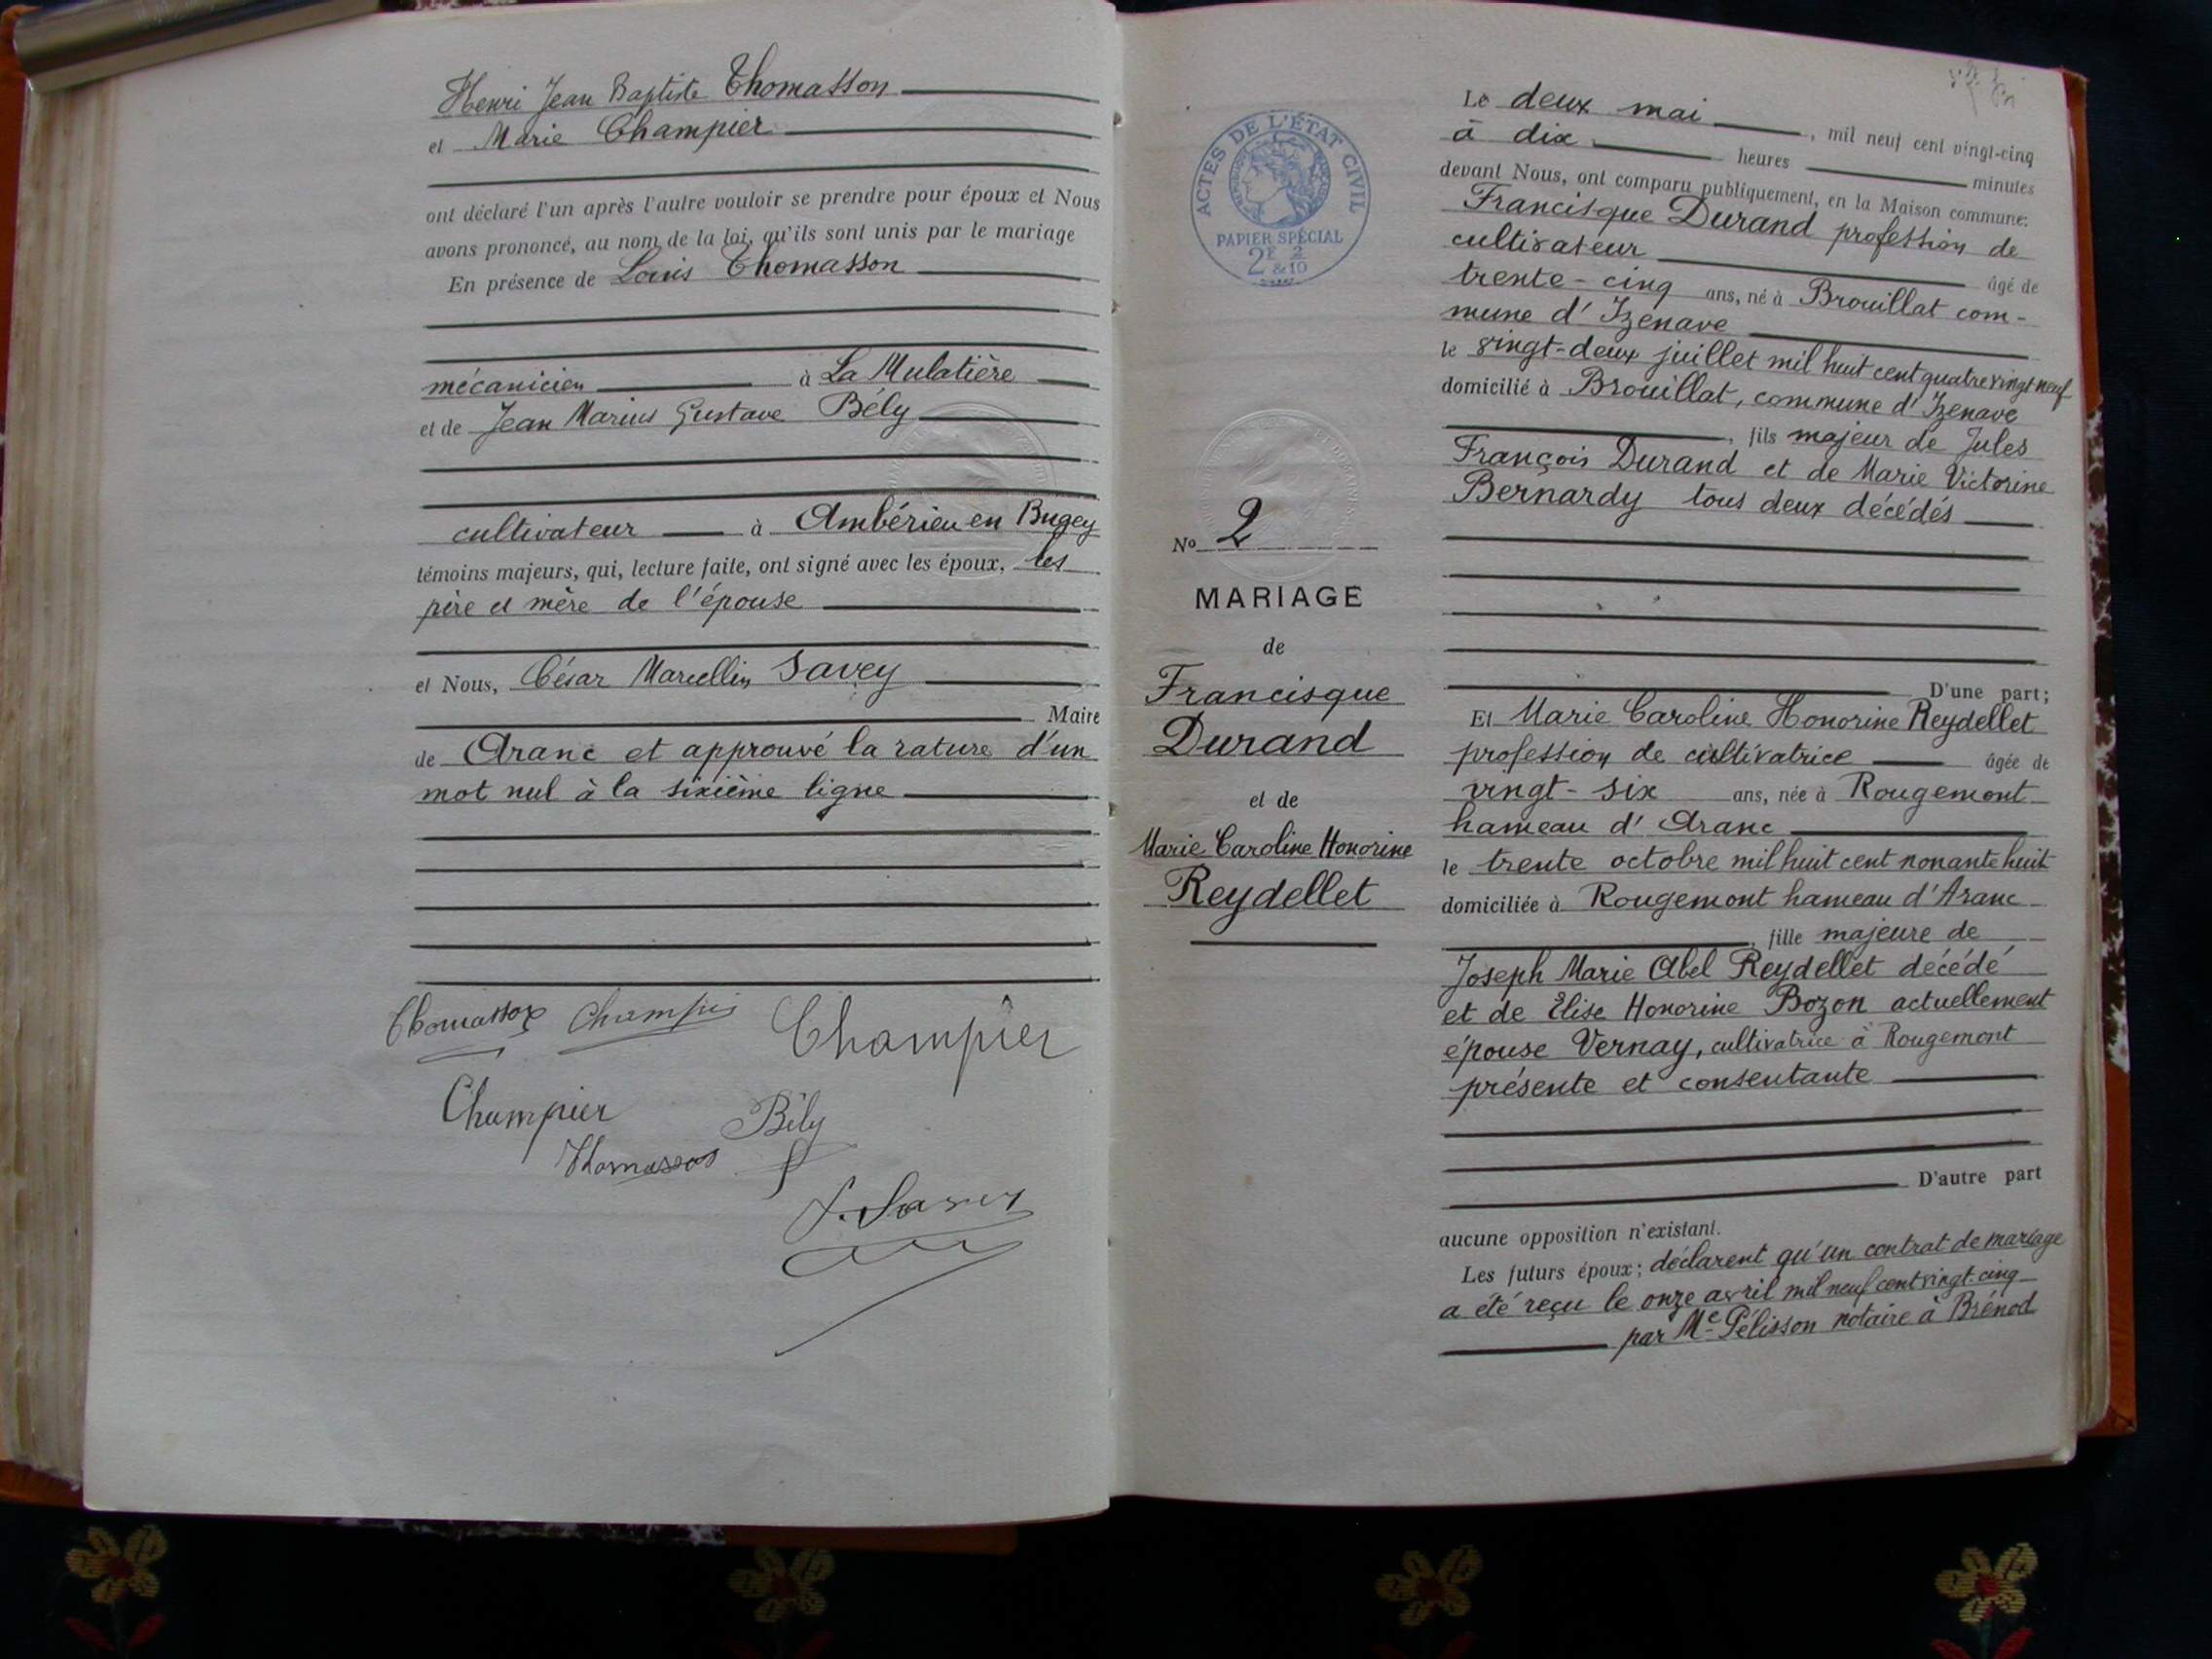 Henri Jean Baptiste Thomasson
et Marie Champier
ont déclaré l'un après l'autre vouloir se prendre pour époux et Nous
avons prononcé, au nom de la loi, qu'ils sont unis par le mariage
En présence de Louis Thomasson
mécanicien à La Mulatière
et de Jean Marius Gustave Bély
cultivateur à Ambérieu en Bugey
témoins majeurs, qui, lecture faite, ont signé avec les époux, les
père et mère de l'épouse
et Nous, César Marcellin Savey
Maire
de Aranc et approuvé la rature d'un
mot nul à la sixième ligne
Thomasson Champier Champier
Champier Bély
Thomasson
Savey
ACTES DE L'ÉTAT CIVIL
PAPIER SPÉCIAL
2F 2
&10
No 2
MARIAGE
de
Francisque
Durand
et de
Marie Caroline Honorine
Reydellet
Le deux mai, mil neuf cent vingt-cinq
à dix heures minutes
devant Nous, ont comparu publiquement, en la Maison commune:
Francisque Durand profession de
cultivateur âgé de
trente-cinq ans, né à Brouillat com-
mune d'Izenave
le vingt-deux juillet mil huit cent quatre vingt neuf
domicilié à Brouillat, commune d'Izenave
, fils majeur de Jules
François Durand et de Marie Victorine
Bernardy tous deux décédés
D'une part;
Et Marie Caroline Honorine Reydellet
profession de cultivatrice âgée de
vingt-six ans, née à Rougemont
hameau d'Aranc
le trente octobre mil huit cent nonante huit
domiciliée à Rougemont hameau d'Aranc
, fille majeure de
Joseph Marie Abel Reydellet décédé
et de Elise Honorine Bozon actuellement
épouse Vernay, cultivatrice à Rougemont
présente et consentante
D'autre part
aucune opposition n'existant.
Les futurs époux; déclarent qu'un contrat de mariage
a été reçu le onze avril mil neuf cent vingt-cinq
par Me Pélisson notaire à Brénod